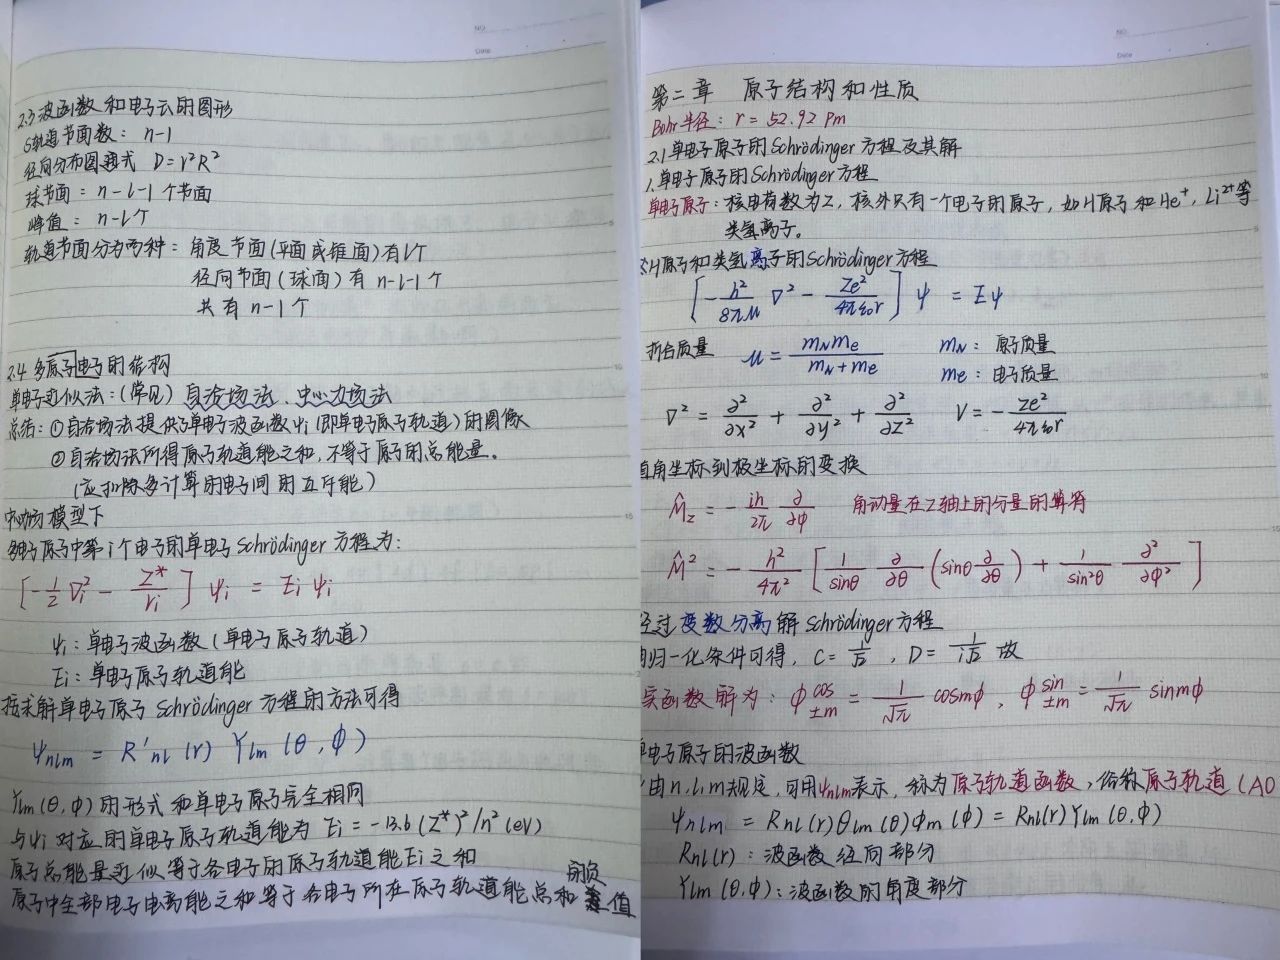 NO.
Date
2.3 波函数和电子云的图形
S轨道节面数: n-1
径向分布图通式 D=r²R²
球节面: n-l-1个节面
峰值: n-l个
轨道节面分为两种: 角度节面(平面或锥面)有l个
径向节面(球面)有 n-l-1个
共有 n-1个
2.4 多原子电子的结构
单电子近似法:(常见) 自洽场法、中心力场法
总结: ①自洽场法提供了单电子波函数ψi(即单电子原子轨道)的图像
②自洽场法所得原子轨道能之和,不等于原子的总能量。
(应扣除多计算的电子间的互斥能)
中心力场模型下
多电子原子中第i个电子的单电子Schrödinger方程为:
[-1/2 ∇i² - Z*/ri] ψi = Ei ψi
ψi: 单电子波函数(单电子原子轨道)
Ei: 单电子原子轨道能
按求解单电子原子Schrödinger方程的方法可得
ψnlm = R'nl(r) Ylm(θ,ϕ)
Ylm(θ,ϕ)的形式和单电子原子完全相同
与ψi对应的单电子原子轨道能为 Ei=-13.6(Z*)²/n²(eV)
原子总能量近似等于各电子的原子轨道能Ei之和
原子中全部电子电离能之和等于各电子所在原子轨道能总和的负值
NO.
Date
第二章 原子结构和性质
Bohr半径: r=52.92 Pm
2.1 单电子原子的Schrödinger方程及其解
1.单电子原子的Schrödinger方程
单电子原子: 核电荷数为Z, 核外只有一个电子的原子, 如H原子和He⁺, Li²⁺等
类氢离子。
H原子和类氢离子的Schrödinger方程
[-h²/8π²μ ∇² - Ze²/4πε₀r] ψ = Eψ
折合质量 μ = mNme/(mN+me) mN: 原子质量
me: 电子质量
∇² = ∂²/∂x² + ∂²/∂y² + ∂²/∂z² V=-Ze²/4πε₀r
直角坐标到极坐标的变换
M̂z = -ih/2π ∂/∂ϕ 角动量在Z轴上的分量的算符
M̂² = -h²/4π² [1/sinθ ∂/∂θ (sinθ ∂/∂θ) + 1/sin²θ ∂²/∂ϕ²]
经过变数分离解Schrödinger方程
由归一化条件可得, C=1/√2, D=1/i√2 故
实函数解为: ϕ cos ±m = 1/√π cosmϕ, ϕ sin ±m = 1/√π sinmϕ
单电子原子的波函数
由n,l,m规定, 可用ψnlm表示, 称为原子轨道函数, 俗称原子轨道(AO
ψnlm = Rnl(r)Θlm(θ)Φm(ϕ) = Rnl(r)Ylm(θ,ϕ)
Rnl(r): 波函数径向部分
Ylm(θ,ϕ): 波函数的角度部分